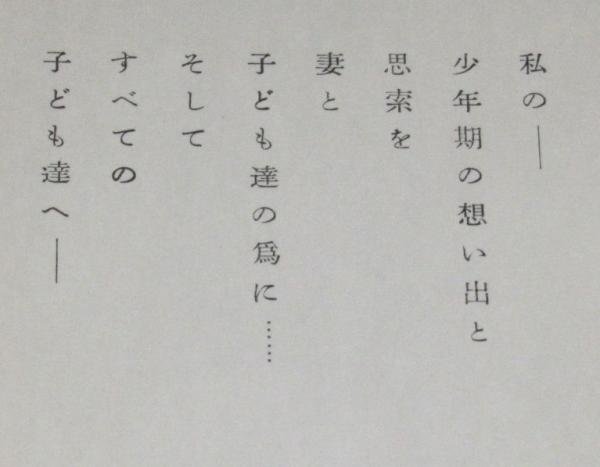 私の――
少年期の想い出と
思索を
妻と
子ども達の爲に……
そして
すべての
子ども達へ――